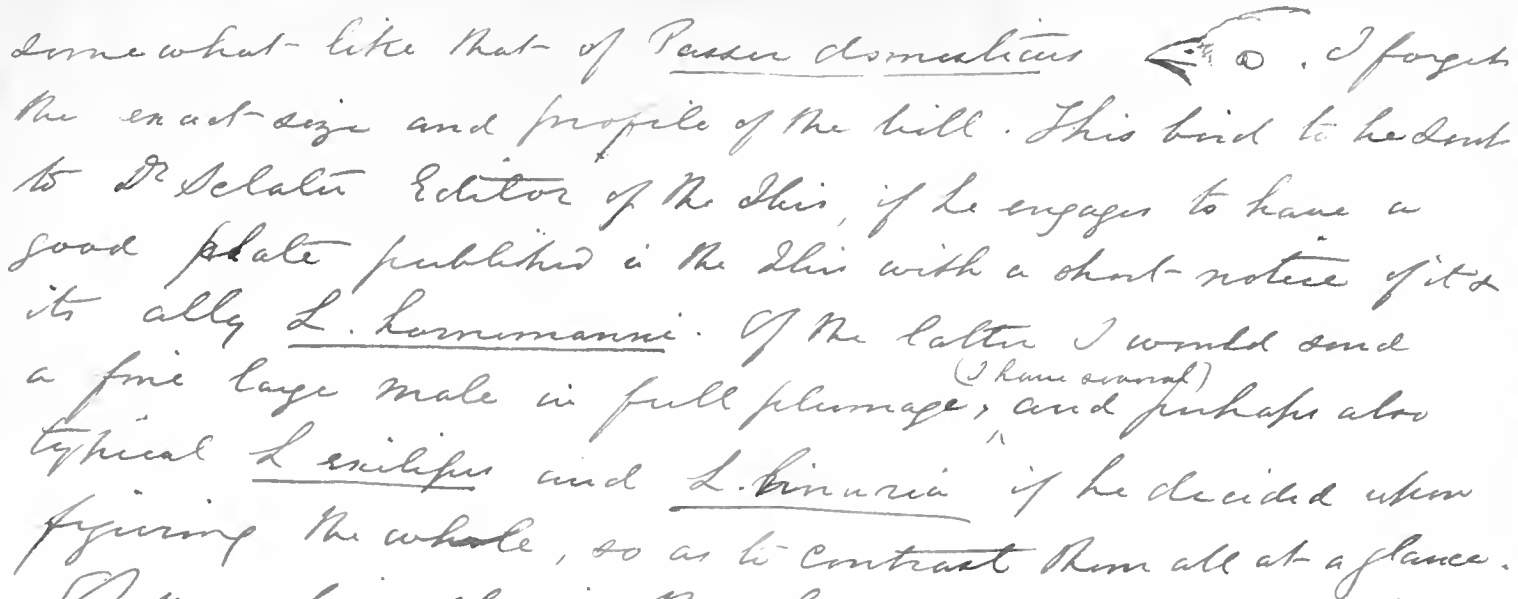 somewhat like that of Passer domesticus . I forget
the exact size and profile of the bill. This bird to be sent
to Dr Sclater Editor of the Ibis, if he engages to have a
good plate published in the Ibis with a short notice of it &
its ally L. hornemanni. Of the latter I would send
a fine large male in full plumage, (I have several) and perhaps also
typical L exilipes and L. linaria if he decided upon
figuring the whole, so as to contrast them all at a glance.